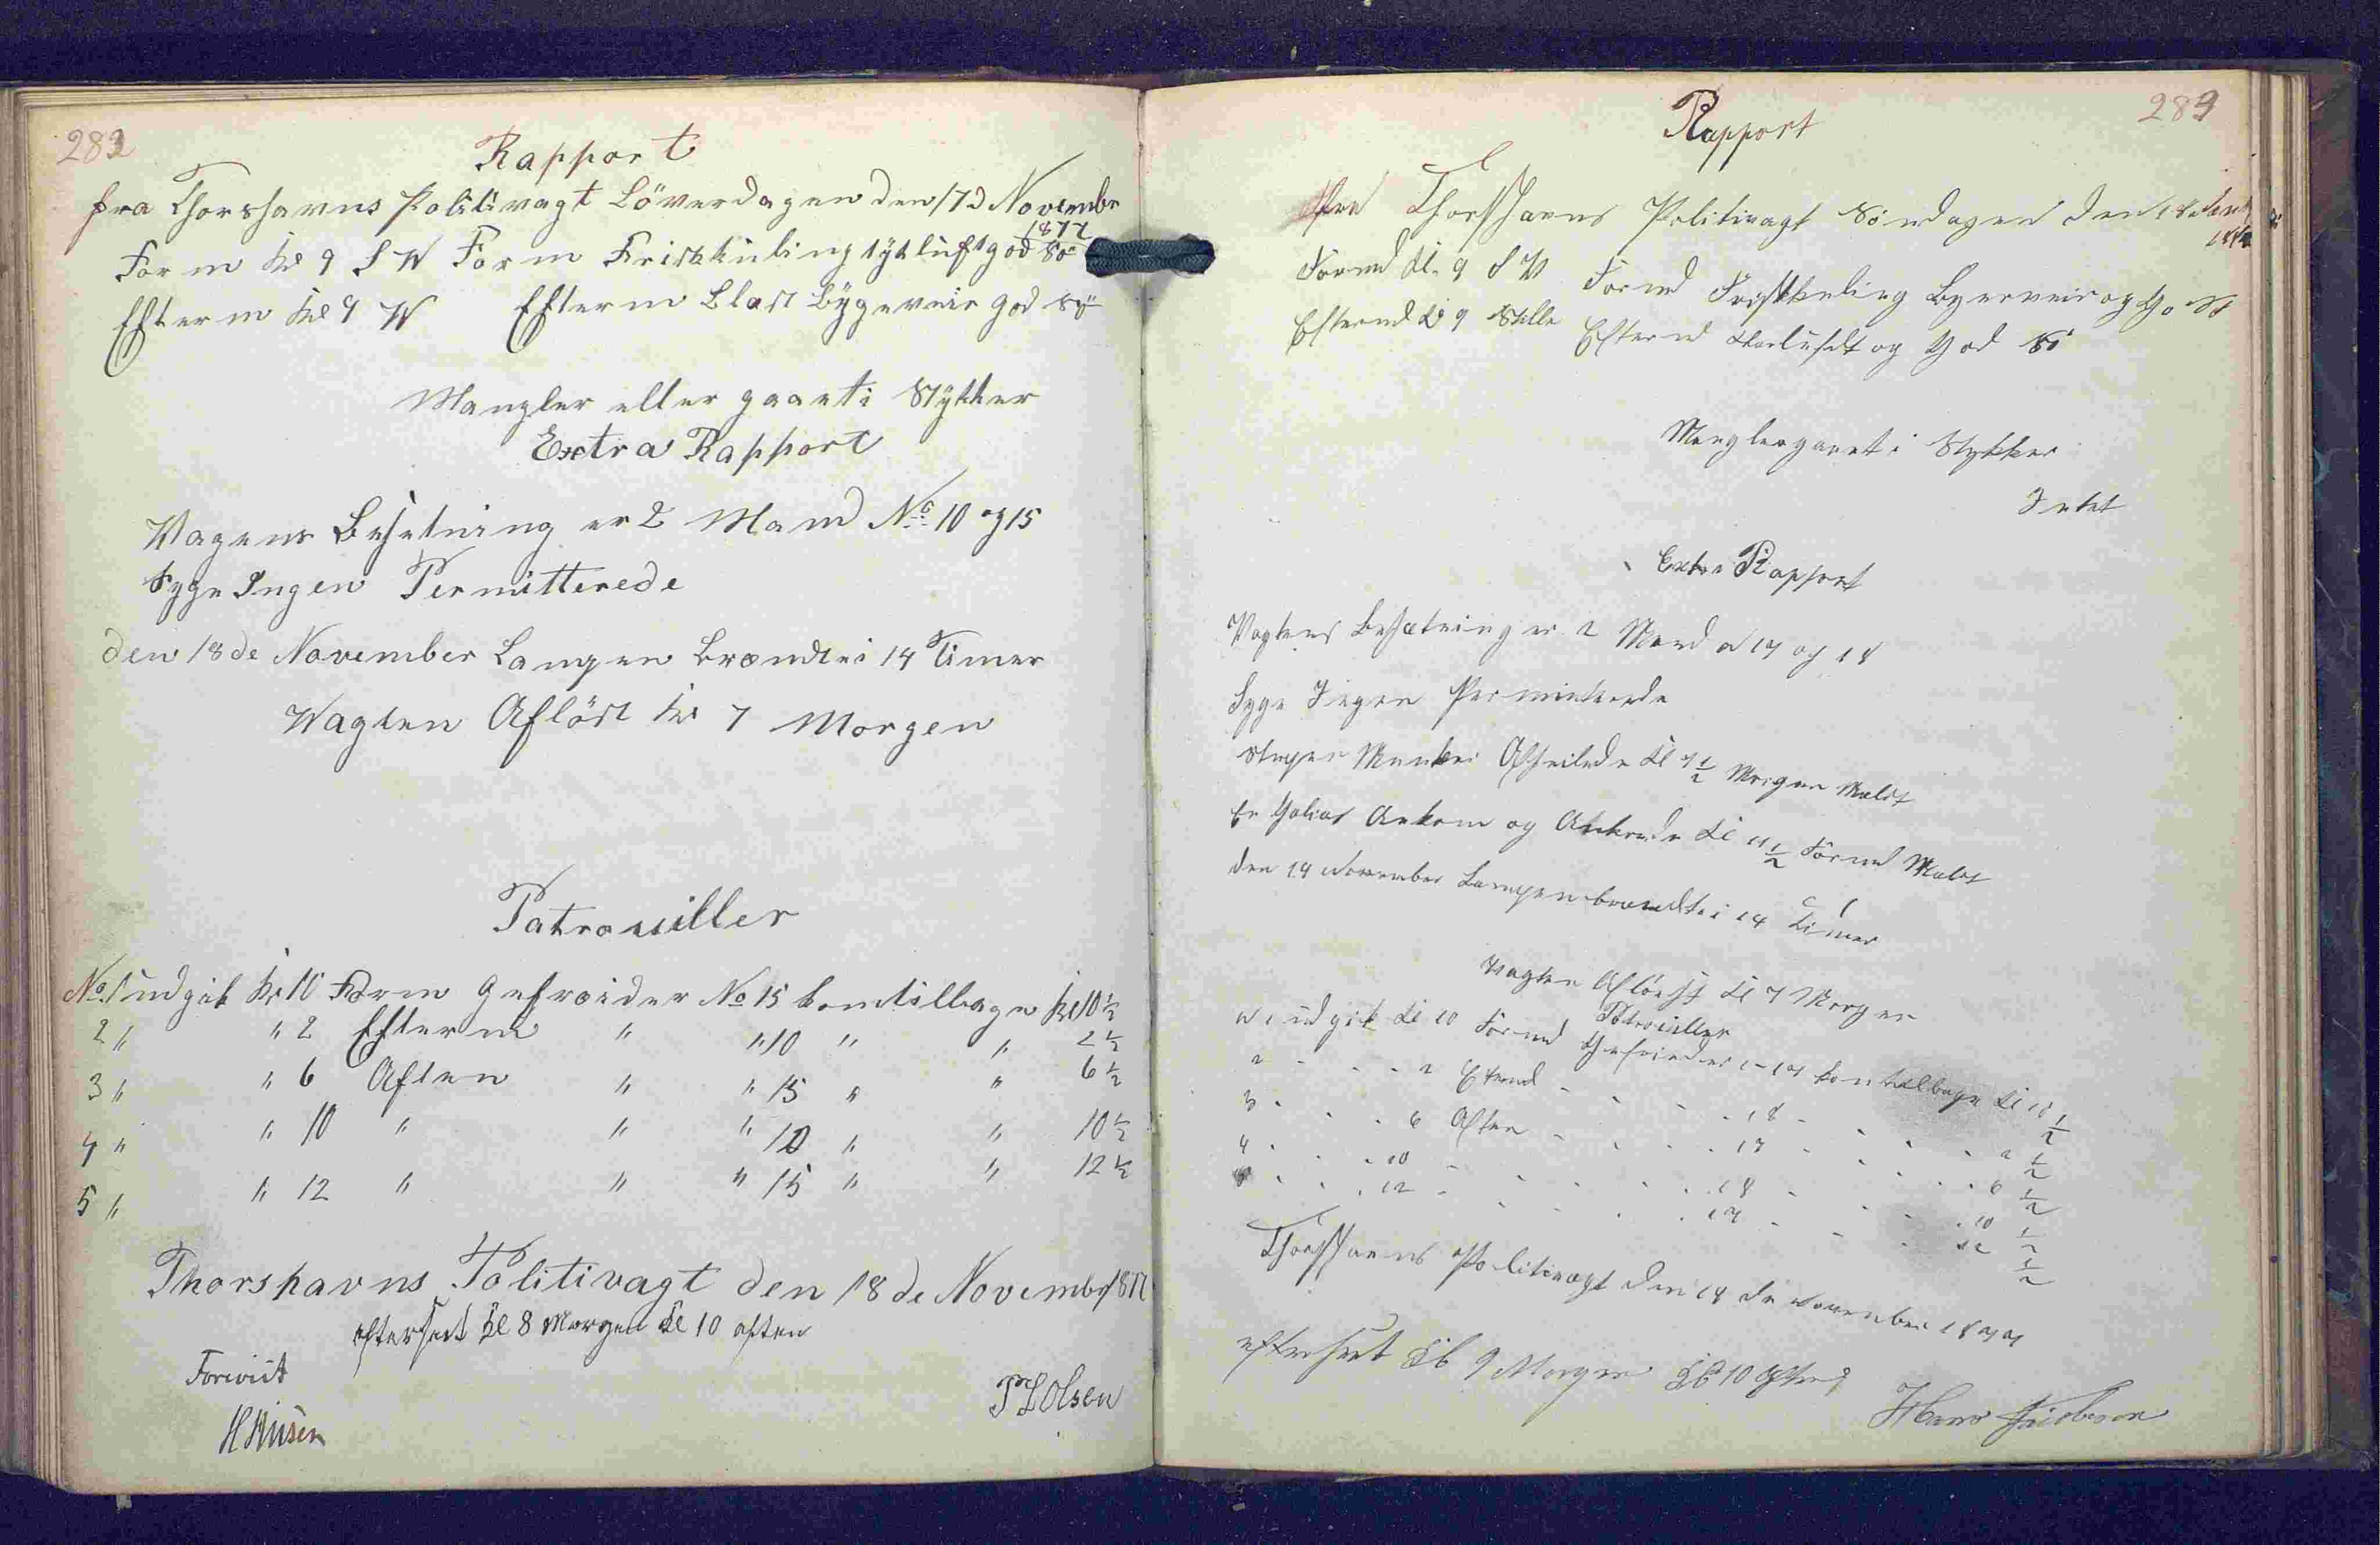 282
Rapport
fra Thorshavns Politivagt Löverdagen den 17d November
1877
Form Kl 9 S W Form Friskkuling tÿkluft god Sö
Efterm Kl 9 W Efterm Blæst Bÿgeveir god Sö
Mangler eller gaaet i Stÿkker
Extra Rapport
Wagens Besetning er 2 Mand No 10 og 15
Syge Ingen Permitterede
den 18de November Lampen Brændte i 14 Timer
Wagten Aflöst Kl 7 Morgen
Patrouiller
No 1 udgik Kl 10 Form Gefreider No 15 kom tilbage Kl 10 ½
2 " " 2 Efterm " " 10 " " 2 ½
3 " " 6 Aften " " 15 " " 6 ½
4 " " 10 " " " 10 " " 10 ½
5 " " 12 " " " 15 " " 12 ½
Thorshavns Politivagt den 18de Novembr 1877
efterseet Kl 8 Morgen Kl 10 aften
Forevist
P L Olsen
289
Rapport
Fra Thorshavns Politivagt Söndagen den 18de
Formd Kl. 9 S W Formd Friskkuling Byerveir og
Eftermd Kl 9 Stille Eftermd og God Sö
Mangler gaaet i Stykker
Intet
Extra Rapport
Vagtens Besætning er 2 Mand No 17 og 18
Syge Ingen Permitterede
Afseilede Kl 7 ½ Morgen Meldt
En Galias Ankom og Ankrede Kl 11 ½ Formd Meldt
den 19 November Lampen brændte i 14 Timer
Vagten Aflöst Kl 7 Morgen
Patrouiller
No 1 udgik Kl 10 Formd Gefreider No 17 kom tilbage Kl 10 ½
2 - - - 2 Eftermd - - - 18 - - - 2 ½
3 - - - 6 Aften - - - 17 - - - 6 ½
4 - - - 10 - - - 18 - - - 10 ½
5 - - - 12 - - - 17 - - - 12 ½
Thorshavns Politivagt den 19 de November 1877
efterseet Kl 9 Morgen Kl 10 Aften
Hans Jacobsen